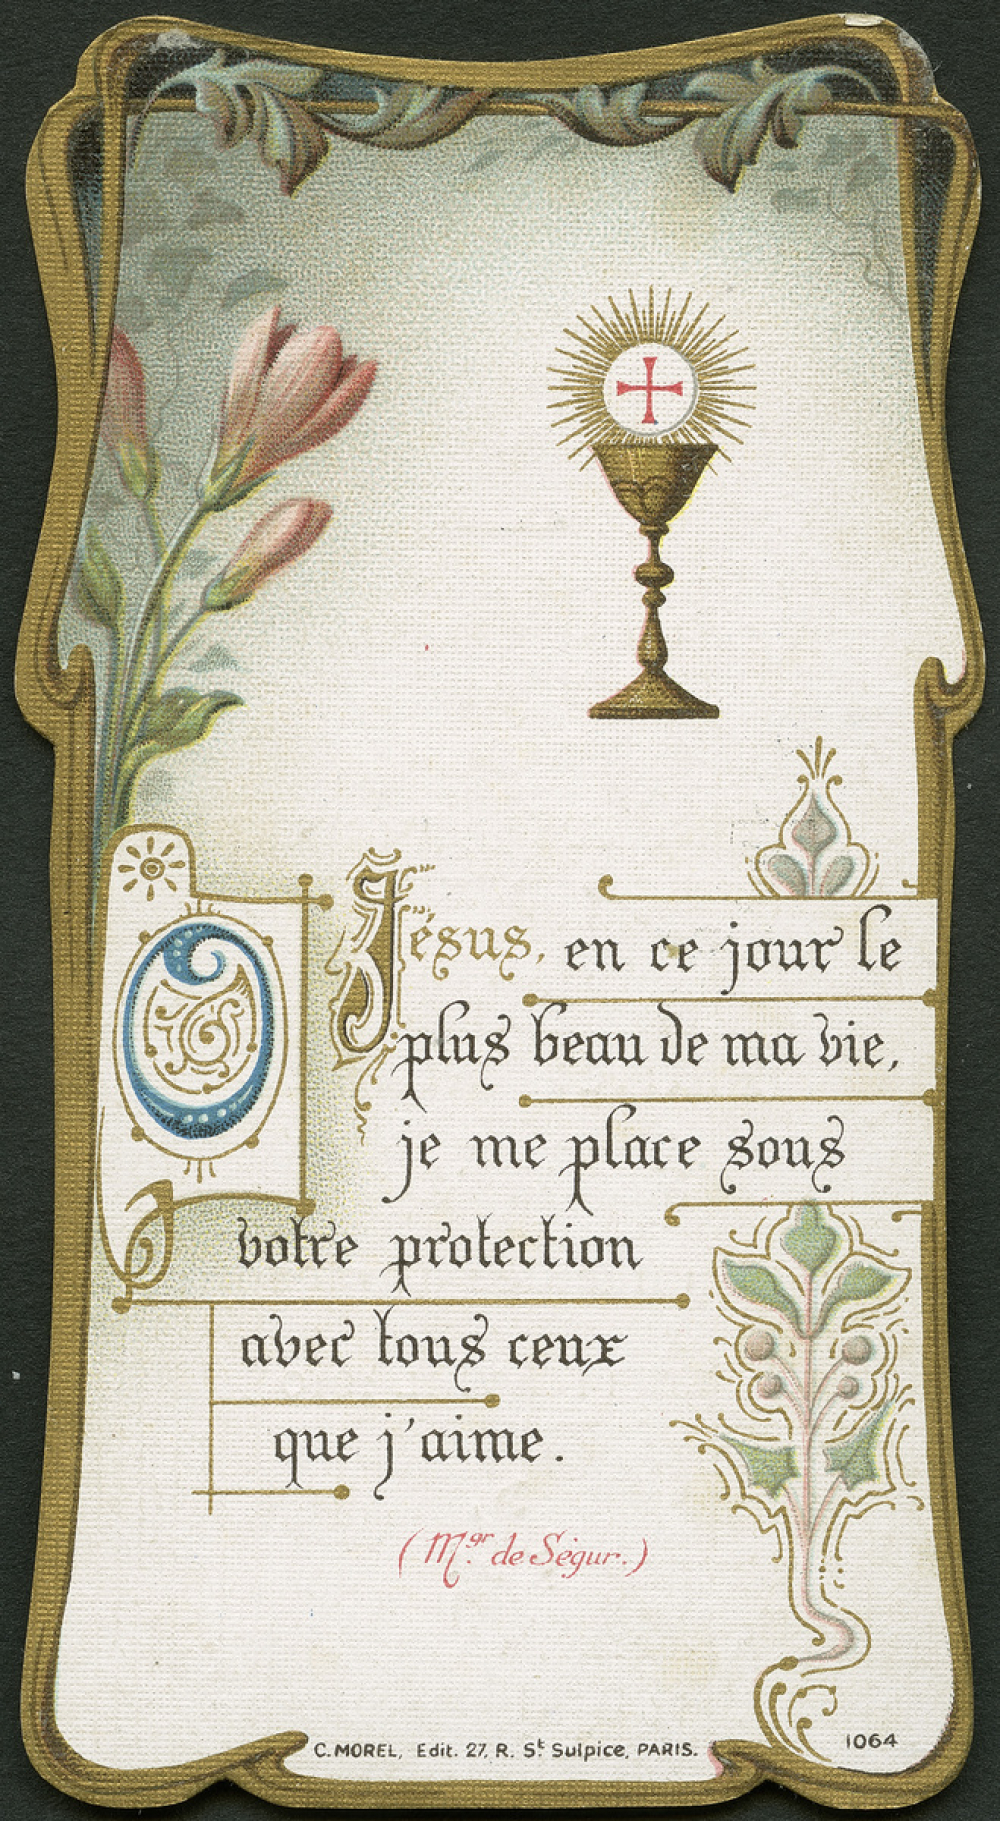 O Jésus, en ce jour le
plus beau de ma vie,
je me place sous
votre protection
avec tous ceux
que j'aime.
(Mgr. de Ségur.)
C. MOREL, Edit. 27, R. St Sulpice, PARIS.
1064